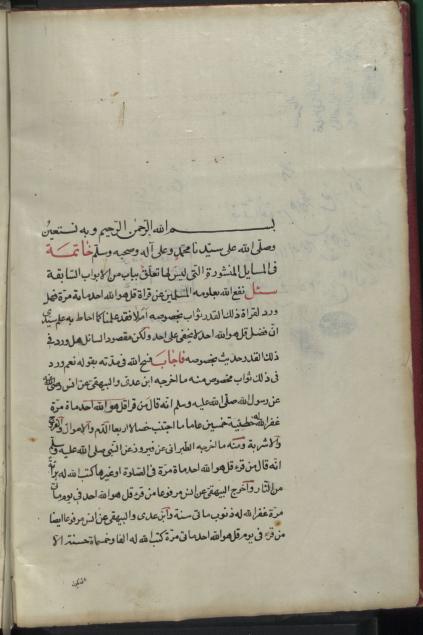 بسم الله الرحمن الرحيم وبه نستعين
وصلى الله على سيدنا محمد وعلى آله وصحبه وسلم خاتمة
فى المسايل المنثورة التى ليس لها تعلق بباب من الابواب السابقة
سئل نفع الله بعلومه المسلمين عن قراة قل هو الله احد ماية مرة فهل
ورد لقراة ذلك القدر ثواب بخصوصه ام لا فقد علمنا ما احاط به علم سيدى
ان فضل قل هو الله احد لا يخفى على احد ولكن مقصود السائل هل ورد فى
ذلك القدر حديث بخصوصه فاجاب فسح الله فى مدته بقوله نعم ورد
فى ذلك ثواب مخصوص منه ما اخرجه ابن عدى والبيهقى عن انس رضى الله عنه
عن رسول الله صلى الله عليه وسلم انه قال من قرا قل هو الله احد ماة مرة
غفر الله له خطيئة خمسين عاما ما اجتنب خصالا اربعا الدم والاموال والفروج
والاشربة ومنه ما اخرجه الطبرانى عن فيروز عن النبى صلى الله عليه وسلم
انه قال من قرء قل هو الله احد ماة مرة فى الصلوة او غيرها كتب الله له براة
من النار واخرج البيهقى عن انس مرفوعا من قرء قل هو الله احد فى يوم ماتى
مرة غفر الله له ذنوب ماتى سنة وابن عدى والبيهقى عن انس مرفوعا ايضا
من قرء فى يوم قل هو الله احد ماتى مرة كتب الله له الفا وخمسماة حسنة الا